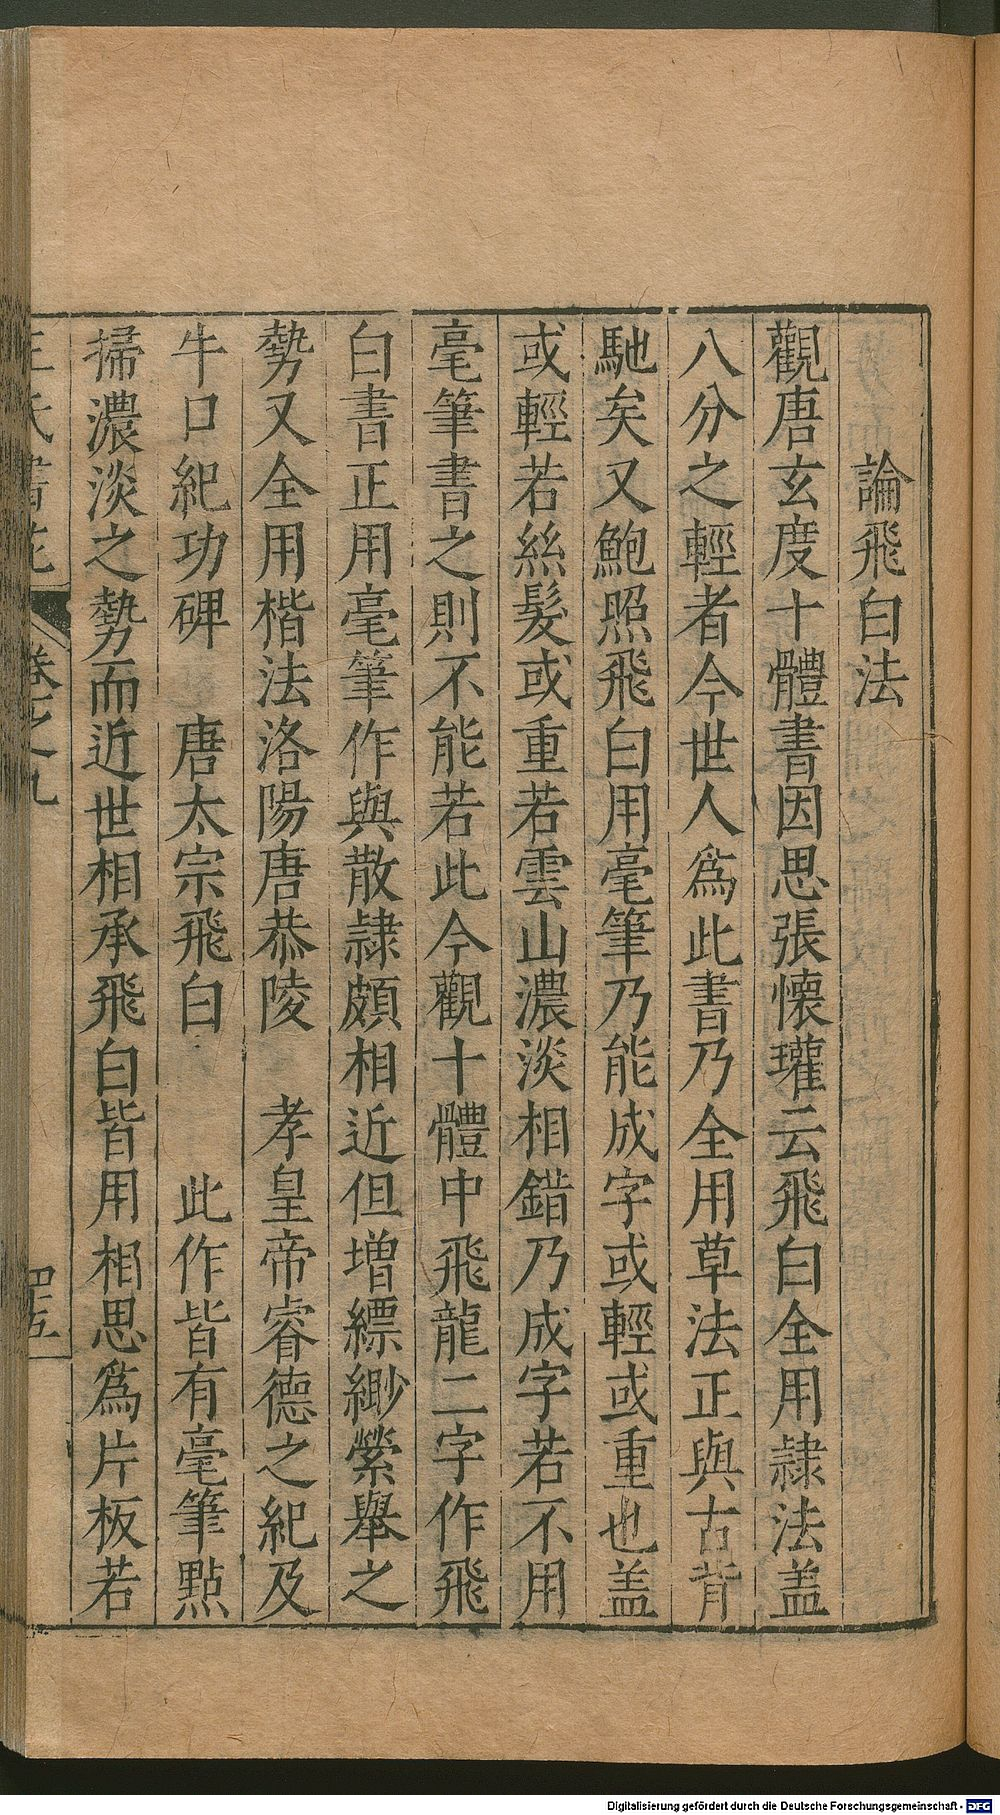 論飛白法
觀唐玄度十體書因思張懷瓘云飛白全用隷法盖
八分之輕者今世人爲此書乃全用草法正與古背
馳矣又鮑照飛白用毫筆乃能成字或輕或重也盖
或輕若絲髮或重若雲山濃淡相錯乃成字若不用
毫筆書之則不能若此今觀十體中飛龍二字作飛
白書正用毫筆作與散隷頗相近但增縹緲縈舉之
勢又全用楷法洛陽唐恭陵 孝皇帝睿德之紀及
牛口紀功碑 唐太宗飛白 此作皆有毫筆點
掃濃淡之勢而近世相承飛白皆用相思爲片板若
王氏書苑 卷之九 四十五
Digitalisierung gefördert durch die Deutsche Forschungsgemeinschaft - DFG